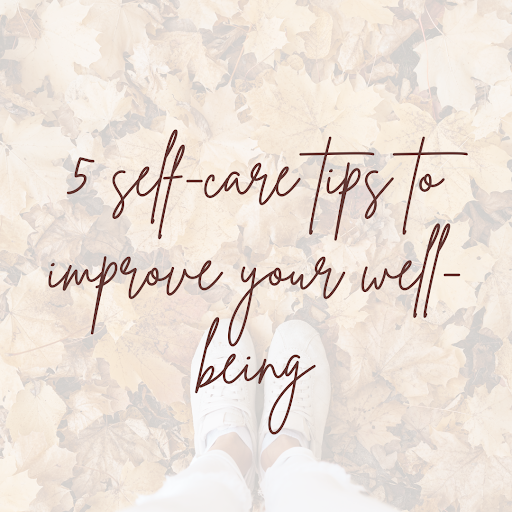 5 self-care tips to
improve your well-
being